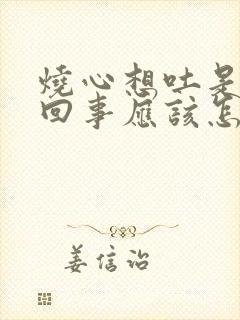 燒心想吐是
回事應該怎
姜信治